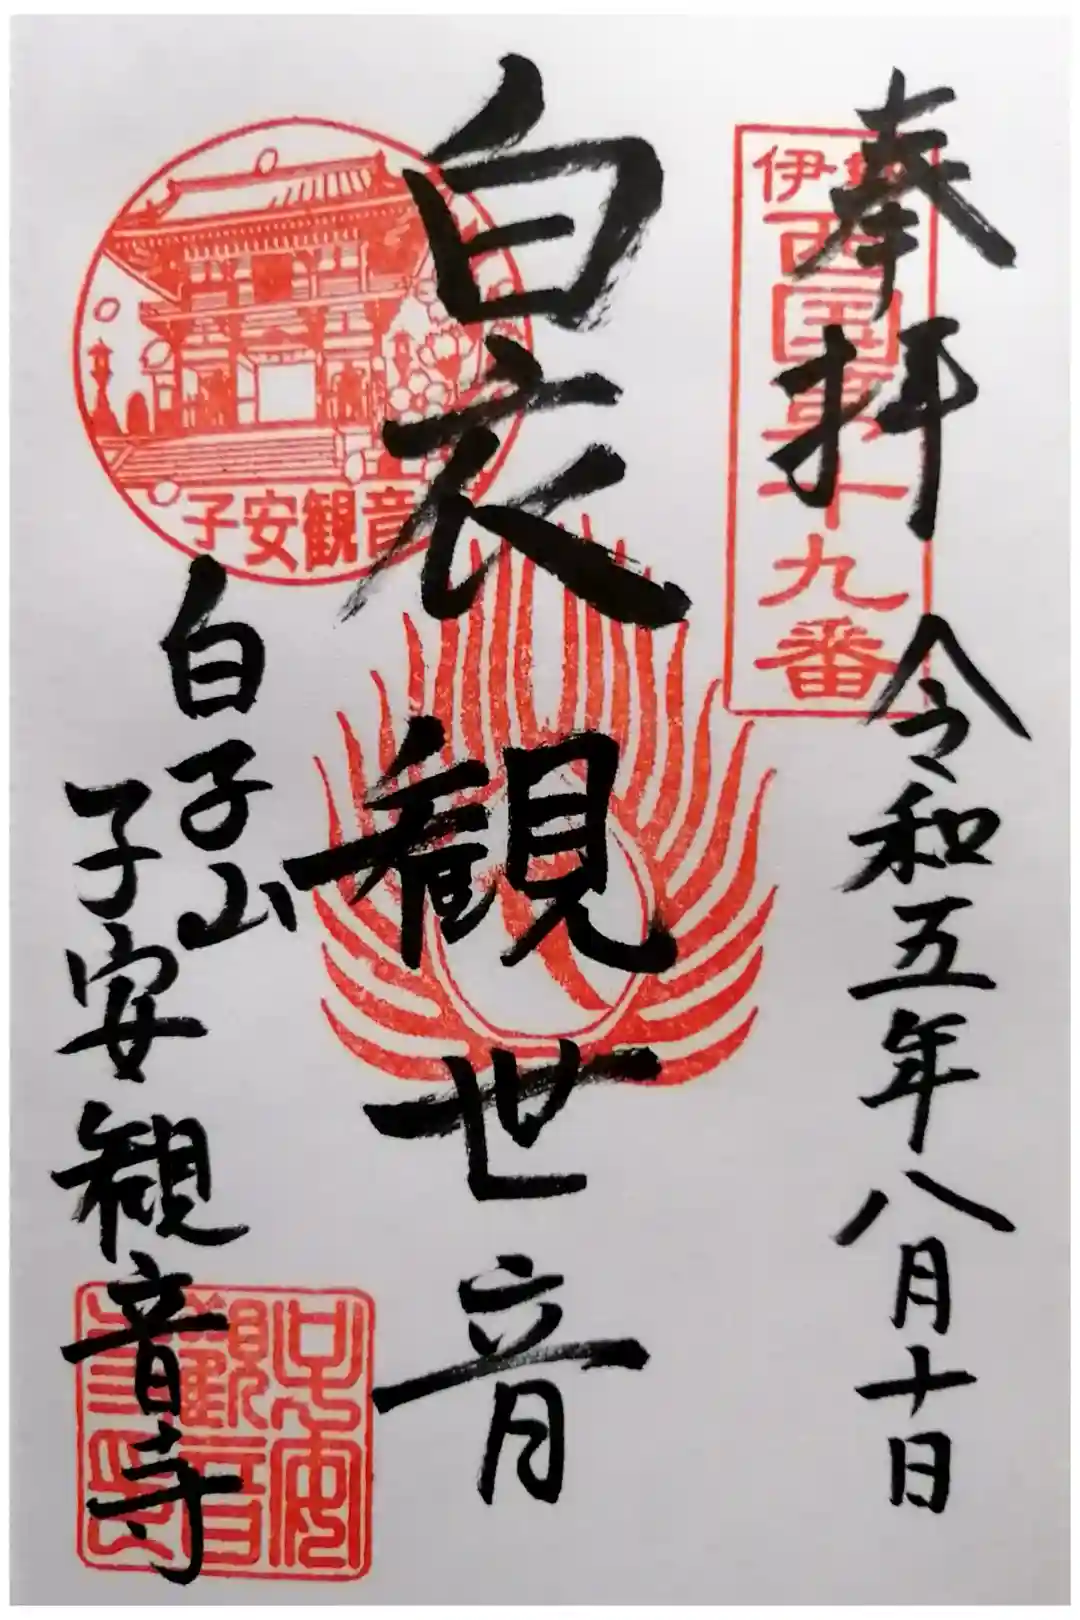 奉拝
令和五年八月十日
伊勢
西国第十九番
白衣観世音
子安観音
白子山
子安観音寺
子安観音寺印